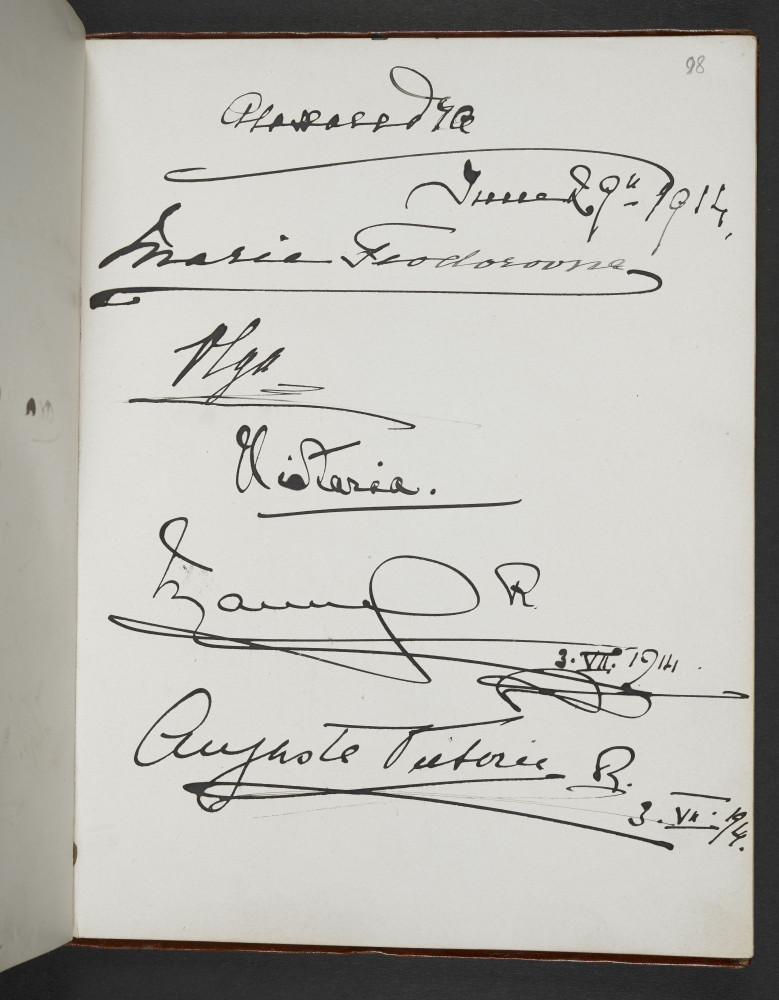 98
Alexandra
June 29th 1914,
Maria Feodorovna
Olga
Victoria.
Manuel R.
3. VII. 1914.
Auguste Victoria R.
3. VII. 1914.